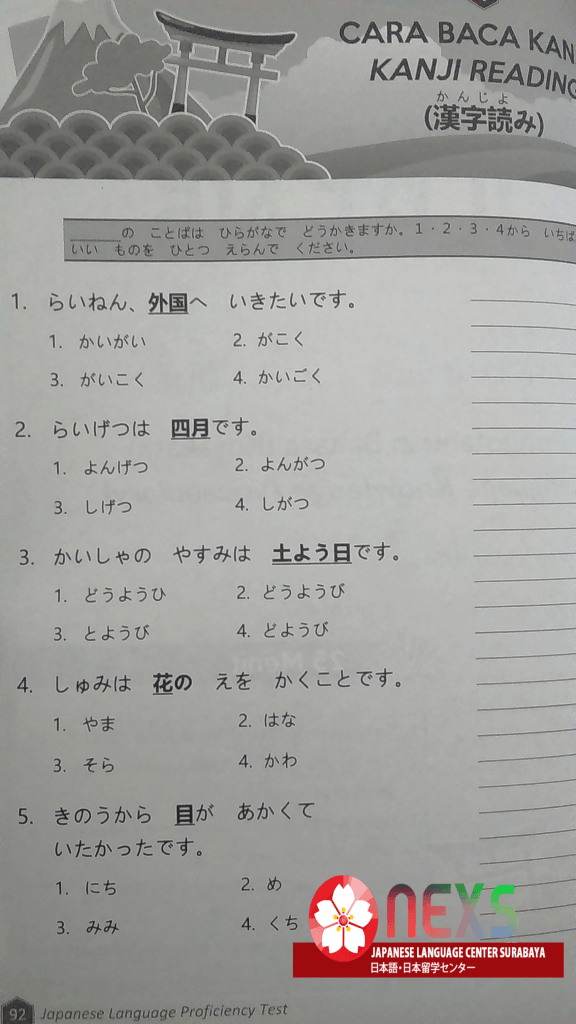 CARA BACA KAN
KANJI READING
かんじよ
(漢字読み)
______の ことばは ひらがなで どうかきますか。1・2・3・4から いちば
いい ものを ひとつ えらんで ください。
1. らいねん、外国へ いきたいです。
1. かいがい 2. がこく
3. がいこく 4. かいごく
2. らいげつは 四月です。
1. よんげつ 2. よんがつ
3. しげつ 4. しがつ
3. かいしゃの やすみは 土よう日です。
1. どうようひ 2. どうようび
3. とようび 4. どようび
4. しゅみは 花の えを かくことです。
1. やま 2. はな
3. そら 4. かわ
5. きのうから 目が あかくて
いたかったです。
1. にち 2. め
3. みみ 4. くち
NEXS
JAPANESE LANGUAGE CENTER SURABAYA
日本語・日本留学センター
92 Japanese Language Proficiency Test